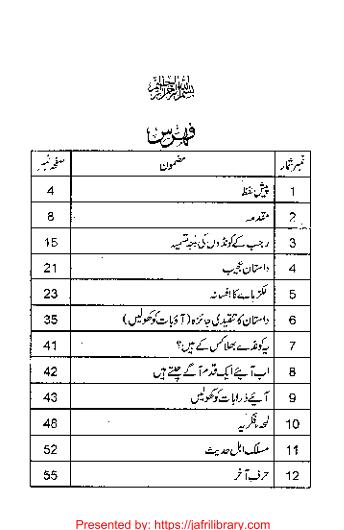 بسم اللہ الرحمن الرحیم
فہرس
نمبر شمار مضمون صفحہ نمبر
1 پیش لفظ 4
2 مقدمہ 8
3 رجب کے کونڈوں کی وجہ تسمیہ 15
4 داستان عجیب 21
5 لکڑہارے کا افسانہ 23
6 داستان کا تنقیدی جائزہ (آؤ بات کو کھولیں) 35
7 یہ کونڈے بھلا کس کے ہیں؟ 41
8 اب آیئے ایک قدم آگے چلتے ہیں 42
9 آیئے ذرا بات کو کھولیں 43
10 لمحہ فکریہ 48
11 مسلک اہل حدیث 52
12 حرف آخر 55
Presented by: https://jafrilibrary.com/